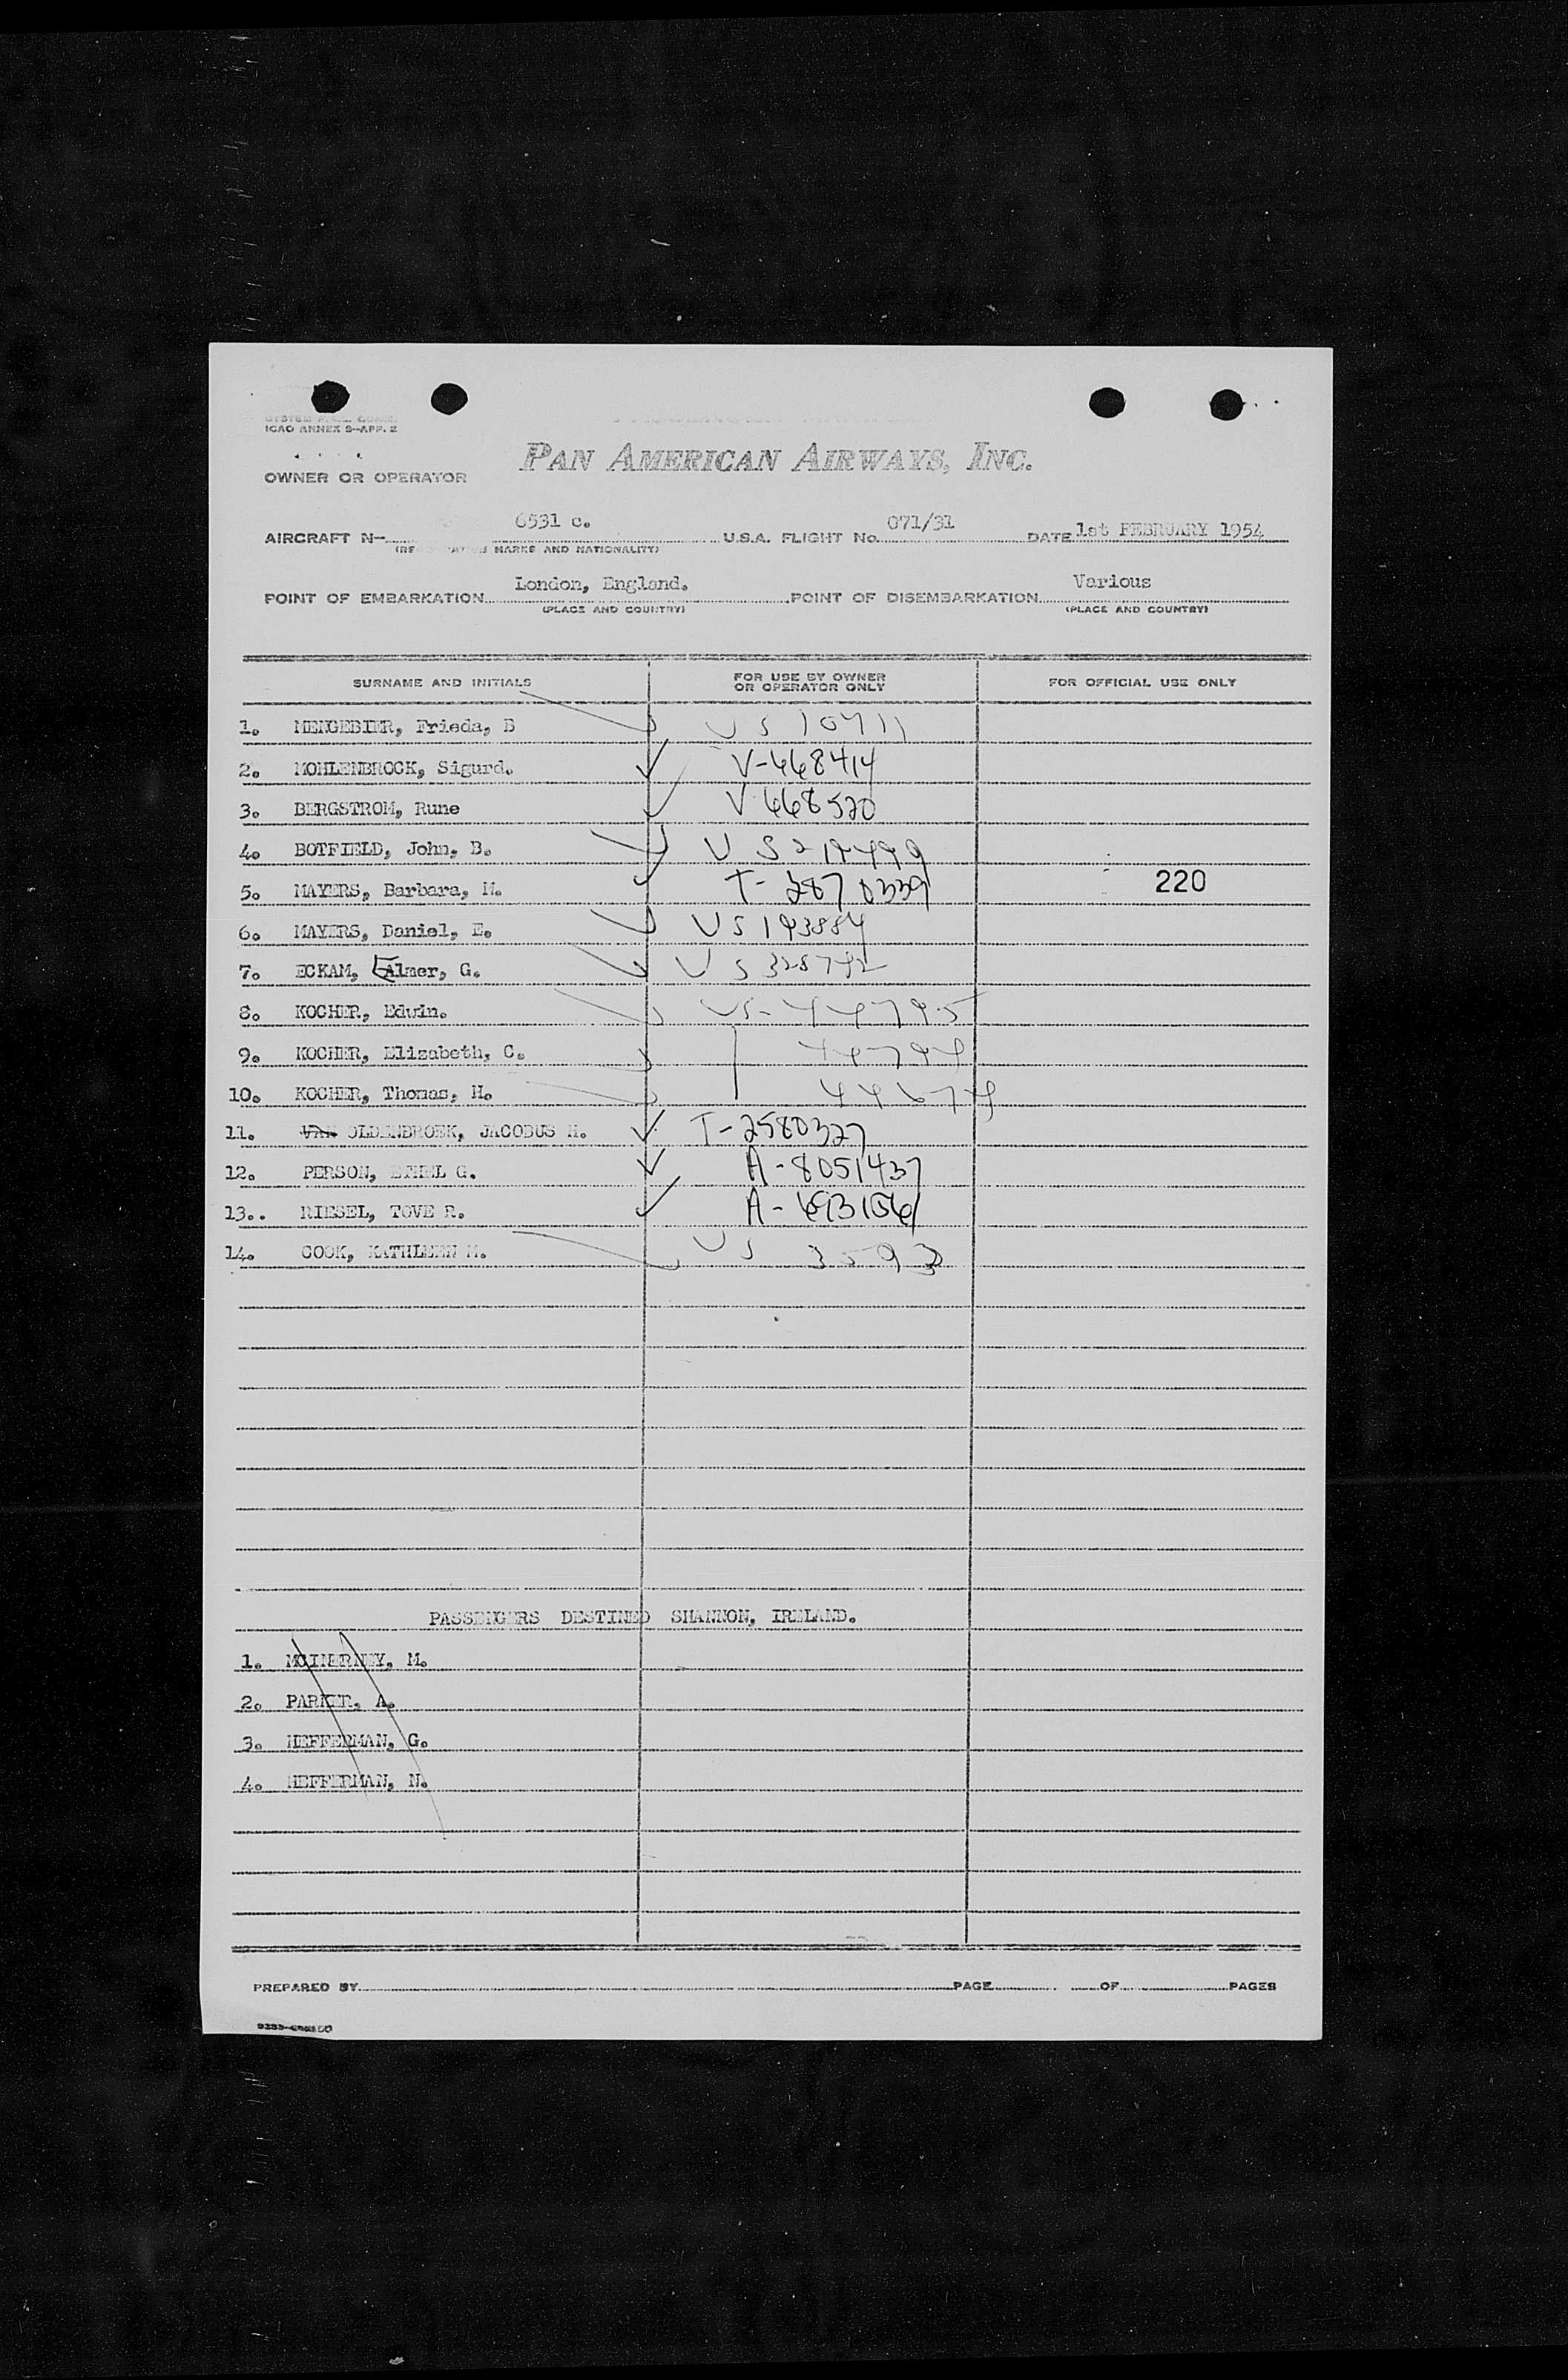 ICAO ANNEX 9-APP. 2
OWNER OR OPERATOR PAN AMERICAN AIRWAYS, INC.
AIRCRAFT N- 6531 c. U.S.A. FLIGHT No. 071/31 DATE 1st FEBRUARY 1954
MARKS AND NATIONALITY)
POINT OF EMBARKATION London, England. POINT OF DISEMBARKATION Various
(PLACE AND COUNTRY) (PLACE AND COUNTRY)
SURNAME AND INITIALS FOR USE BY OWNER OR OPERATOR ONLY FOR OFFICIAL USE ONLY
1. MENGEBIER, Frieda, B US 10711
2. MOHLENBROCK, Sigurd. V-468414
3. BERGSTROM, Rune V 468520
4. BOTFIELD, John, B. US
5. MAYERS, Barbara, M. T- 2870339 220
6. MAYERS, Daniel, E. US 193884
7. ECKAM, Elmer, G. US 328742
8. KOCHER, Edwin. US- 44795
9. KOCHER, Elizabeth, C. 44794
10. KOCHER, Thomas, H. 44674
11. VAN OLDENBROEK, JACOBUS H. T-2580327
12. PERSON, ETHEL G. A-8051437
13.. RIESEL, TOVE R. A-
14. COOK, KATHLEEN M. US 3593
PASSENGERS DESTINED SHANNON, IRELAND.
1. MCINERNEY, M.
2. PARKER, A.
3. HEFFERMAN, G.
4. HEFFERMAN, N.
PREPARED BY PAGE OF PAGES